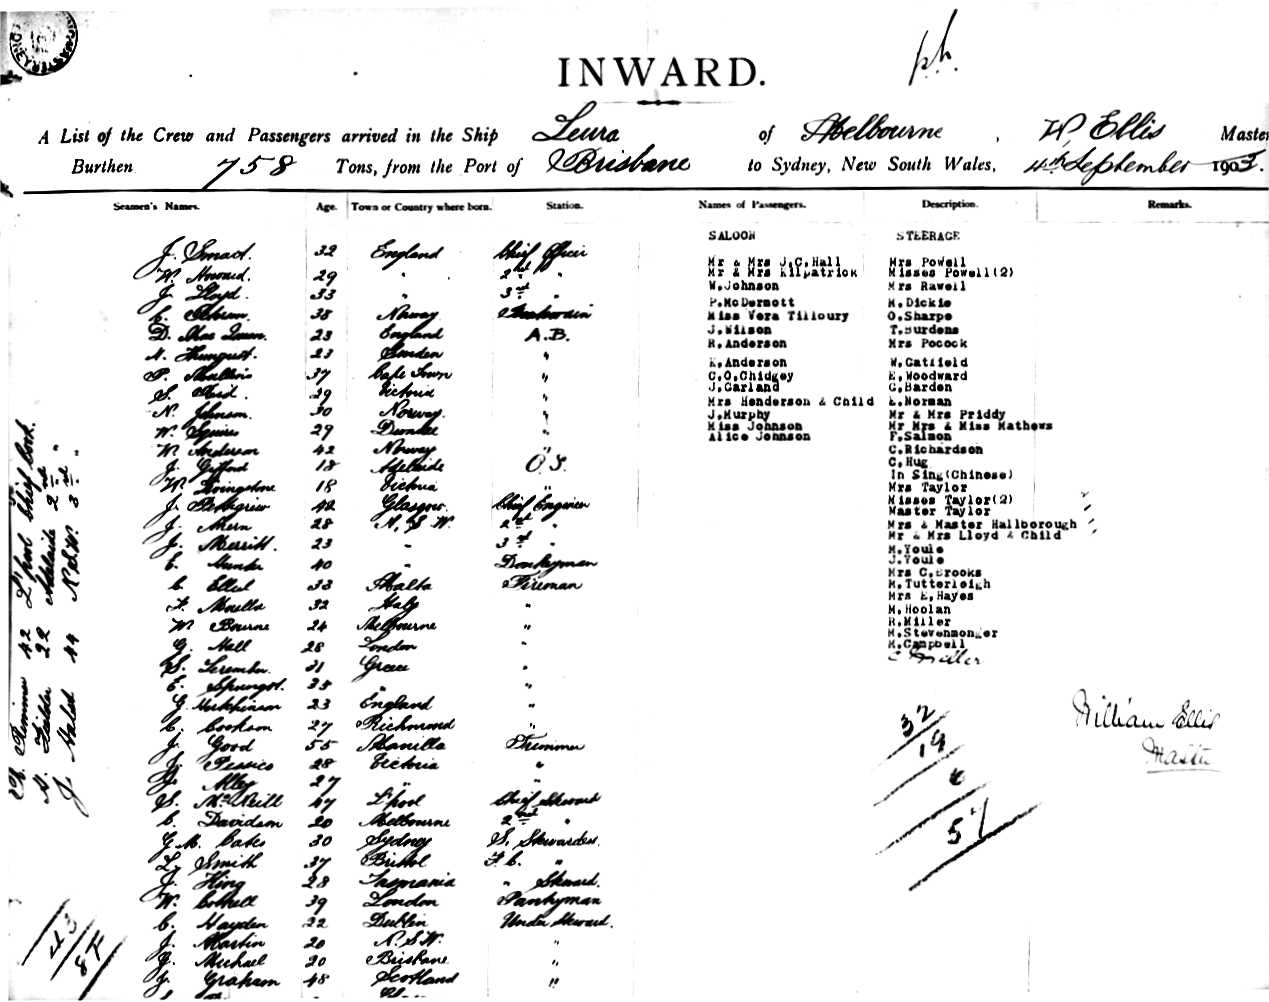 INWARD.
A List of the Crew and Passengers arrived in the Ship Leura of Melbourne, W. Ellis Master
Burthen 758 Tons, from the Port of Brisbane to Sydney, New South Wales, 4th September 1903.
Seamen's Names. Age. Town or Country where born. Station. Names of Passengers. Description. Remarks.
J. Smart. 32 England Chief Officer
W. Howard. 29 " 2nd "
J. Lloyd. 33 " 3rd "
C. 38 Norway
D. 23 England A.B.
N. 23 Sweden "
P. 37 Cape Town "
S. Ford. 29 Victoria "
N. Johnson. 30 Norway. "
W. Squires 29 Dundee "
W. Anderson 42 Norway "
J. Gifford 18 Adelaide O.S.
W. Livingstone 18 Victoria "
J. Pettigrew 42 Glasgow. Chief Engineer
J. Ahern 28 N.S.W. 2nd "
J. Merritt. 23 " 3rd "
E. 40 " Donkeyman
C. Ellul 33 Malta Fireman
F. 32 Italy "
W. Bourne 24 Melbourne "
G. Hall 28 London "
S. 31 Greece "
E. 35 " "
G. Hutchinson 23 England "
C. Cookson 27 Richmond "
J. Good 55 Manilla Trimmer
J. Jessico 28 Victoria "
J. Alley 27 " "
S. McNeill 47 L'pool Chief Steward
C. Davidson 20 Melbourne 2nd "
G.M. Oates 30 Sydney S. Stewardess.
L. Smith 37 Bristol F.C. "
J. King 28 Tasmania " Steward.
W. Cornell 39 London Pantryman
C. Hayden 22 Dublin Under Steward.
J. Martin 20 N.S.W. "
J. Michael 20 Brisbane "
J. Graham 48 Scotland "
42 L'pool Chief Cook.
22 Adelaide 2nd "
J. Hales 44 N.S.W. 3rd "
43
87
SALOON
Mr & Mrs J.C.Hall
Mr & Mrs Kilpatrick
W.Johnson
P.McDermott
Miss Vera Tilloury
J.Wilson
R.Anderson
E.Anderson
C.O.Chidgey
J.Garland
Mrs Henderson & Child
J.Murphy
Miss Johnson
Alice Johnson
STEERAGE
Mrs Powell
Misses Powell(2)
Mrs Rawell
M.Dickie
O.Sharpe
T.Burdens
Mrs Pocock
W.Gatfield
E.Woodward
G.Barden
E.Norman
Mr & Mrs Priddy
Mr Mrs & Miss Mathews
F.Salmon
C.Richardson
C.Hug
In Sing(Chinese)
Mrs Taylor
Misses Taylor(2)
Master Taylor
Mrs & Master Hallborough
Mr & Mrs Lloyd & Child
M.Youle
J.Youle
Mrs C.Brooks
M.Tutterleigh
Mrs E.Hayes
M.Hoolan
R.Miller
M.Stevenmonger
M.Campbell
C Miller
32
19
6
57
William Ellis
Master